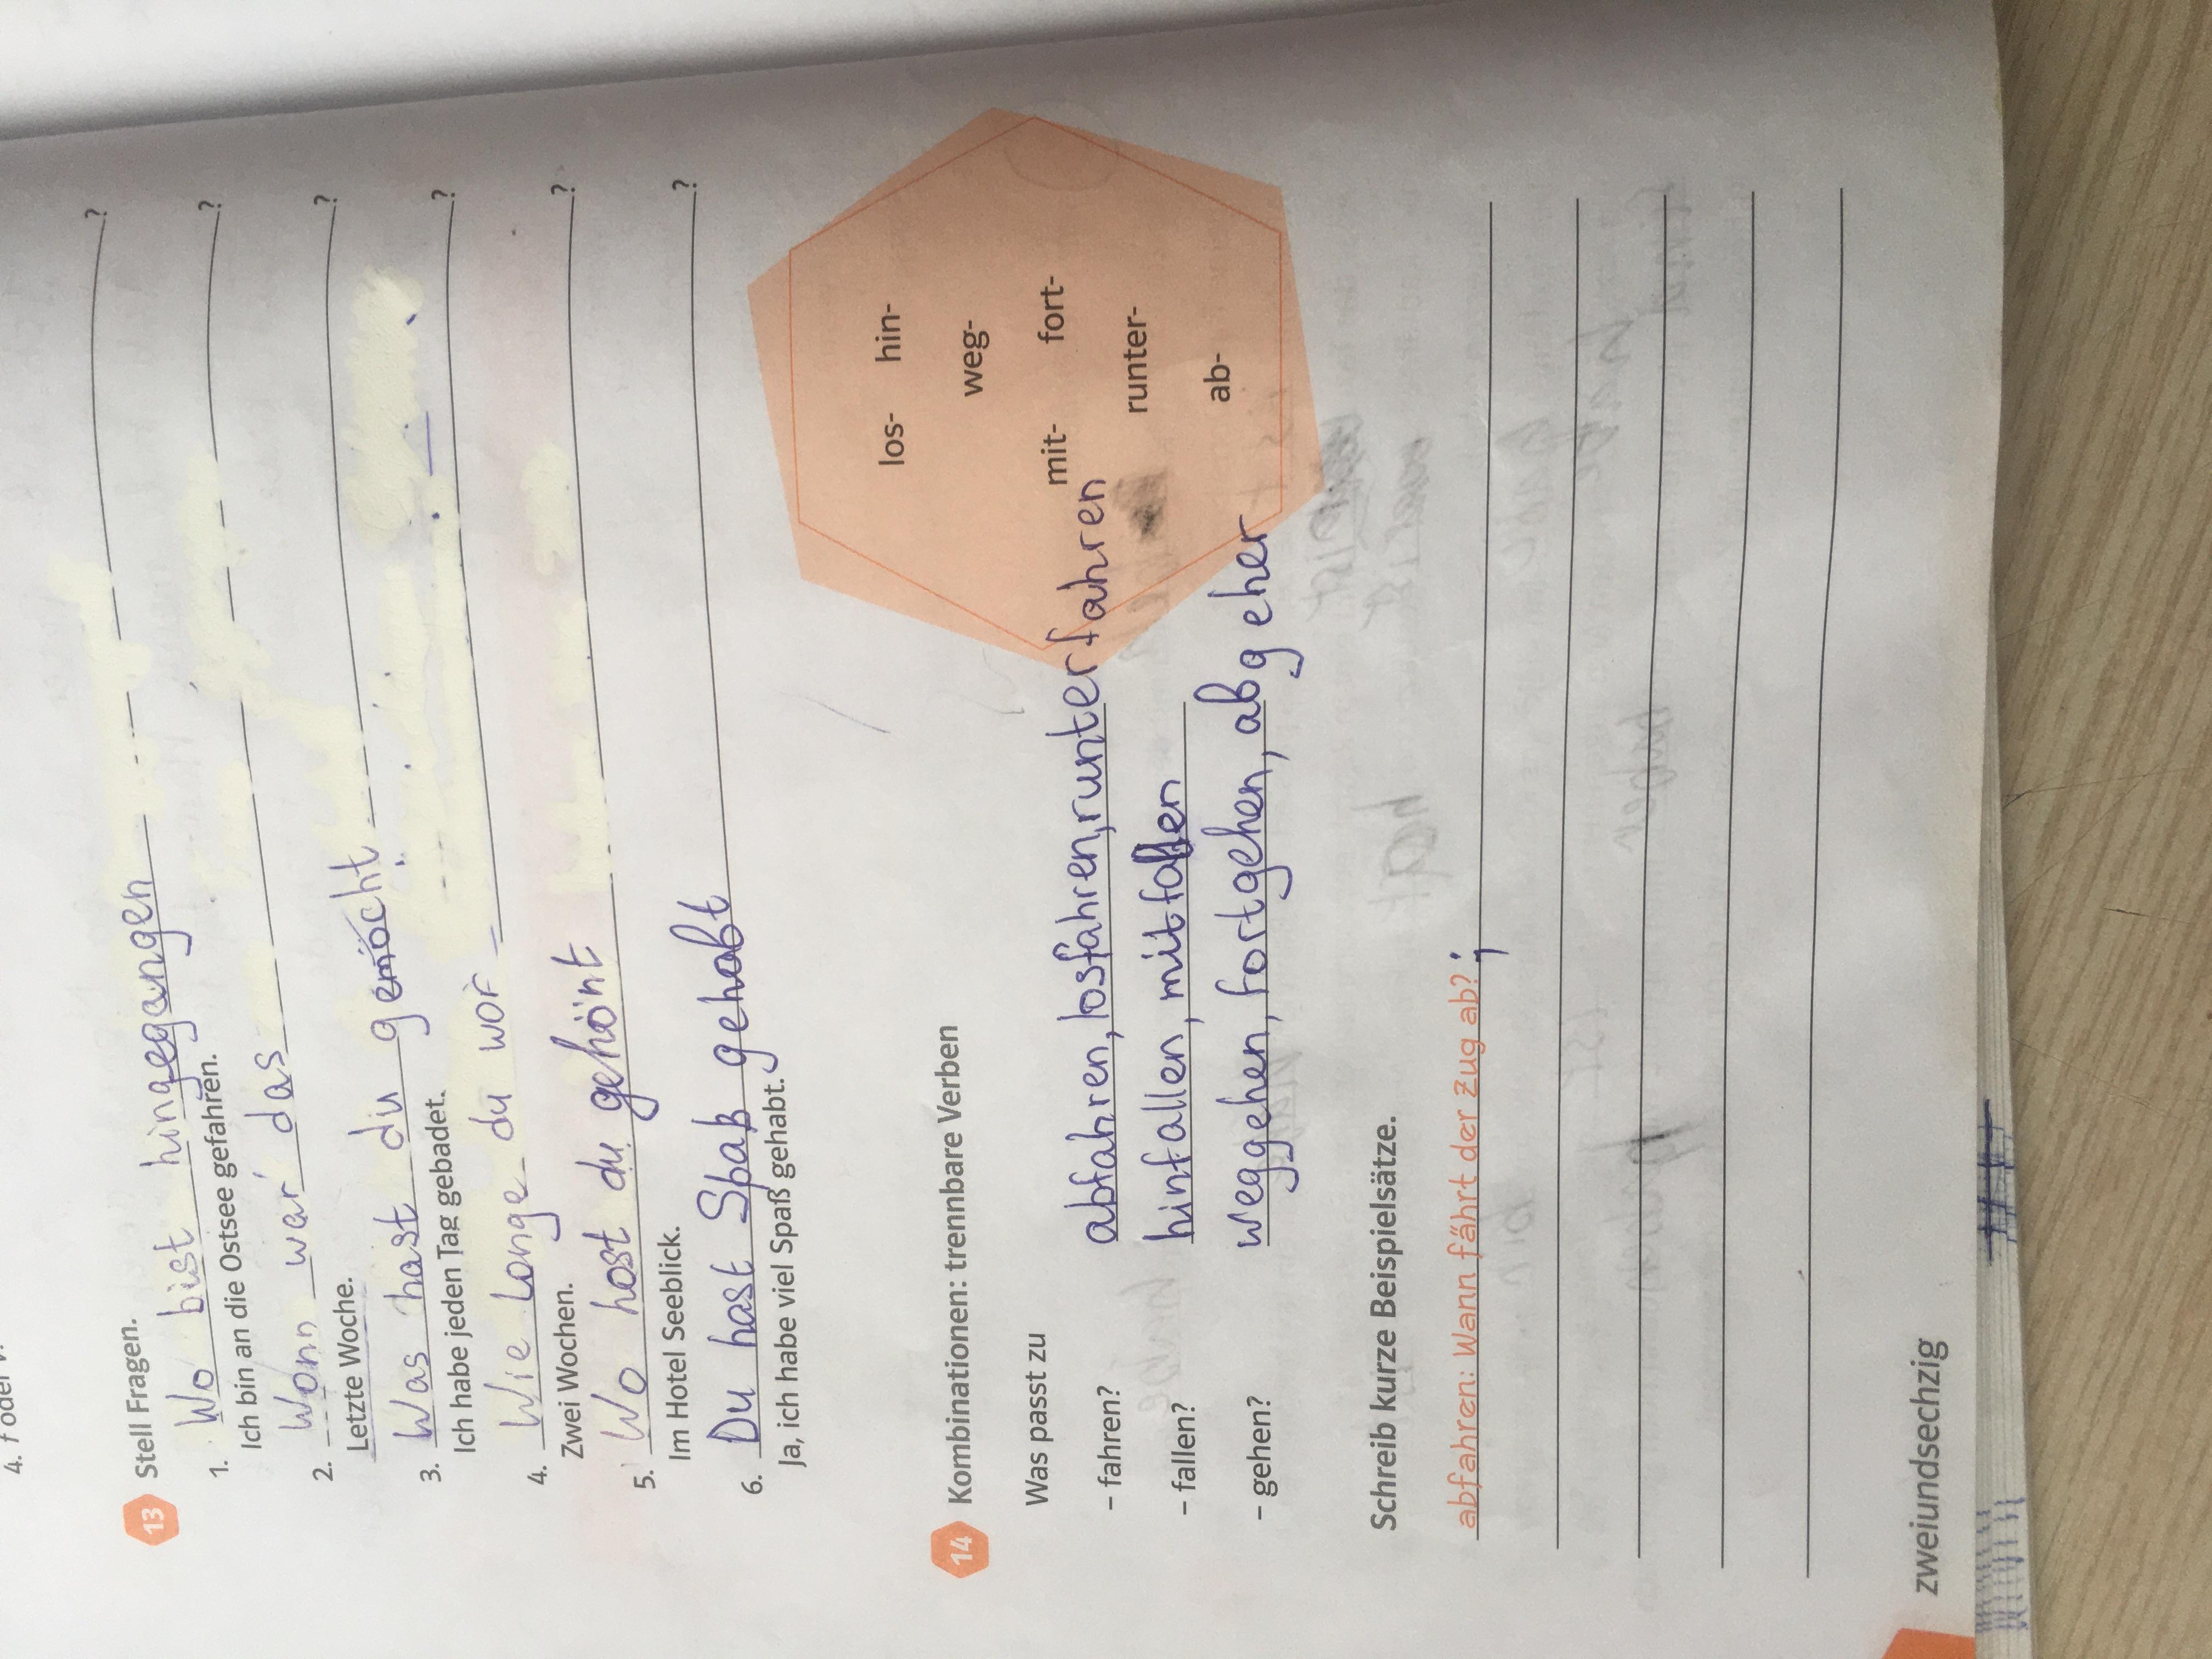 4. f oder
?
13 Stell Fragen.
1. Wo bist hingegangen ?
Ich bin an die Ostsee gefahren.
2. Wann war das ?
Letzte Woche.
3. Was hast du gemacht ?
Ich habe jeden Tag gebadet.
4. Wie Lange du war ?
Zwei Wochen.
5. Wo hast du gehönt ?
Im Hotel Seeblick.
6. Du hast Spaß gehabt ?
Ja, ich habe viel Spaß gehabt.
14 Kombinationen: trennbare Verben
Was passt zu
– fahren? abfahren, losfahren, runterfahren
– fallen? hinfallen, mitfallen
– gehen? weggehen, fortgehen, abgehen
los- hin-
weg-
mit- fort-
runter-
ab-
Schreib kurze Beispielsätze.
abfahren: Wann fährt der Zug ab? ;
zweiundsechzig